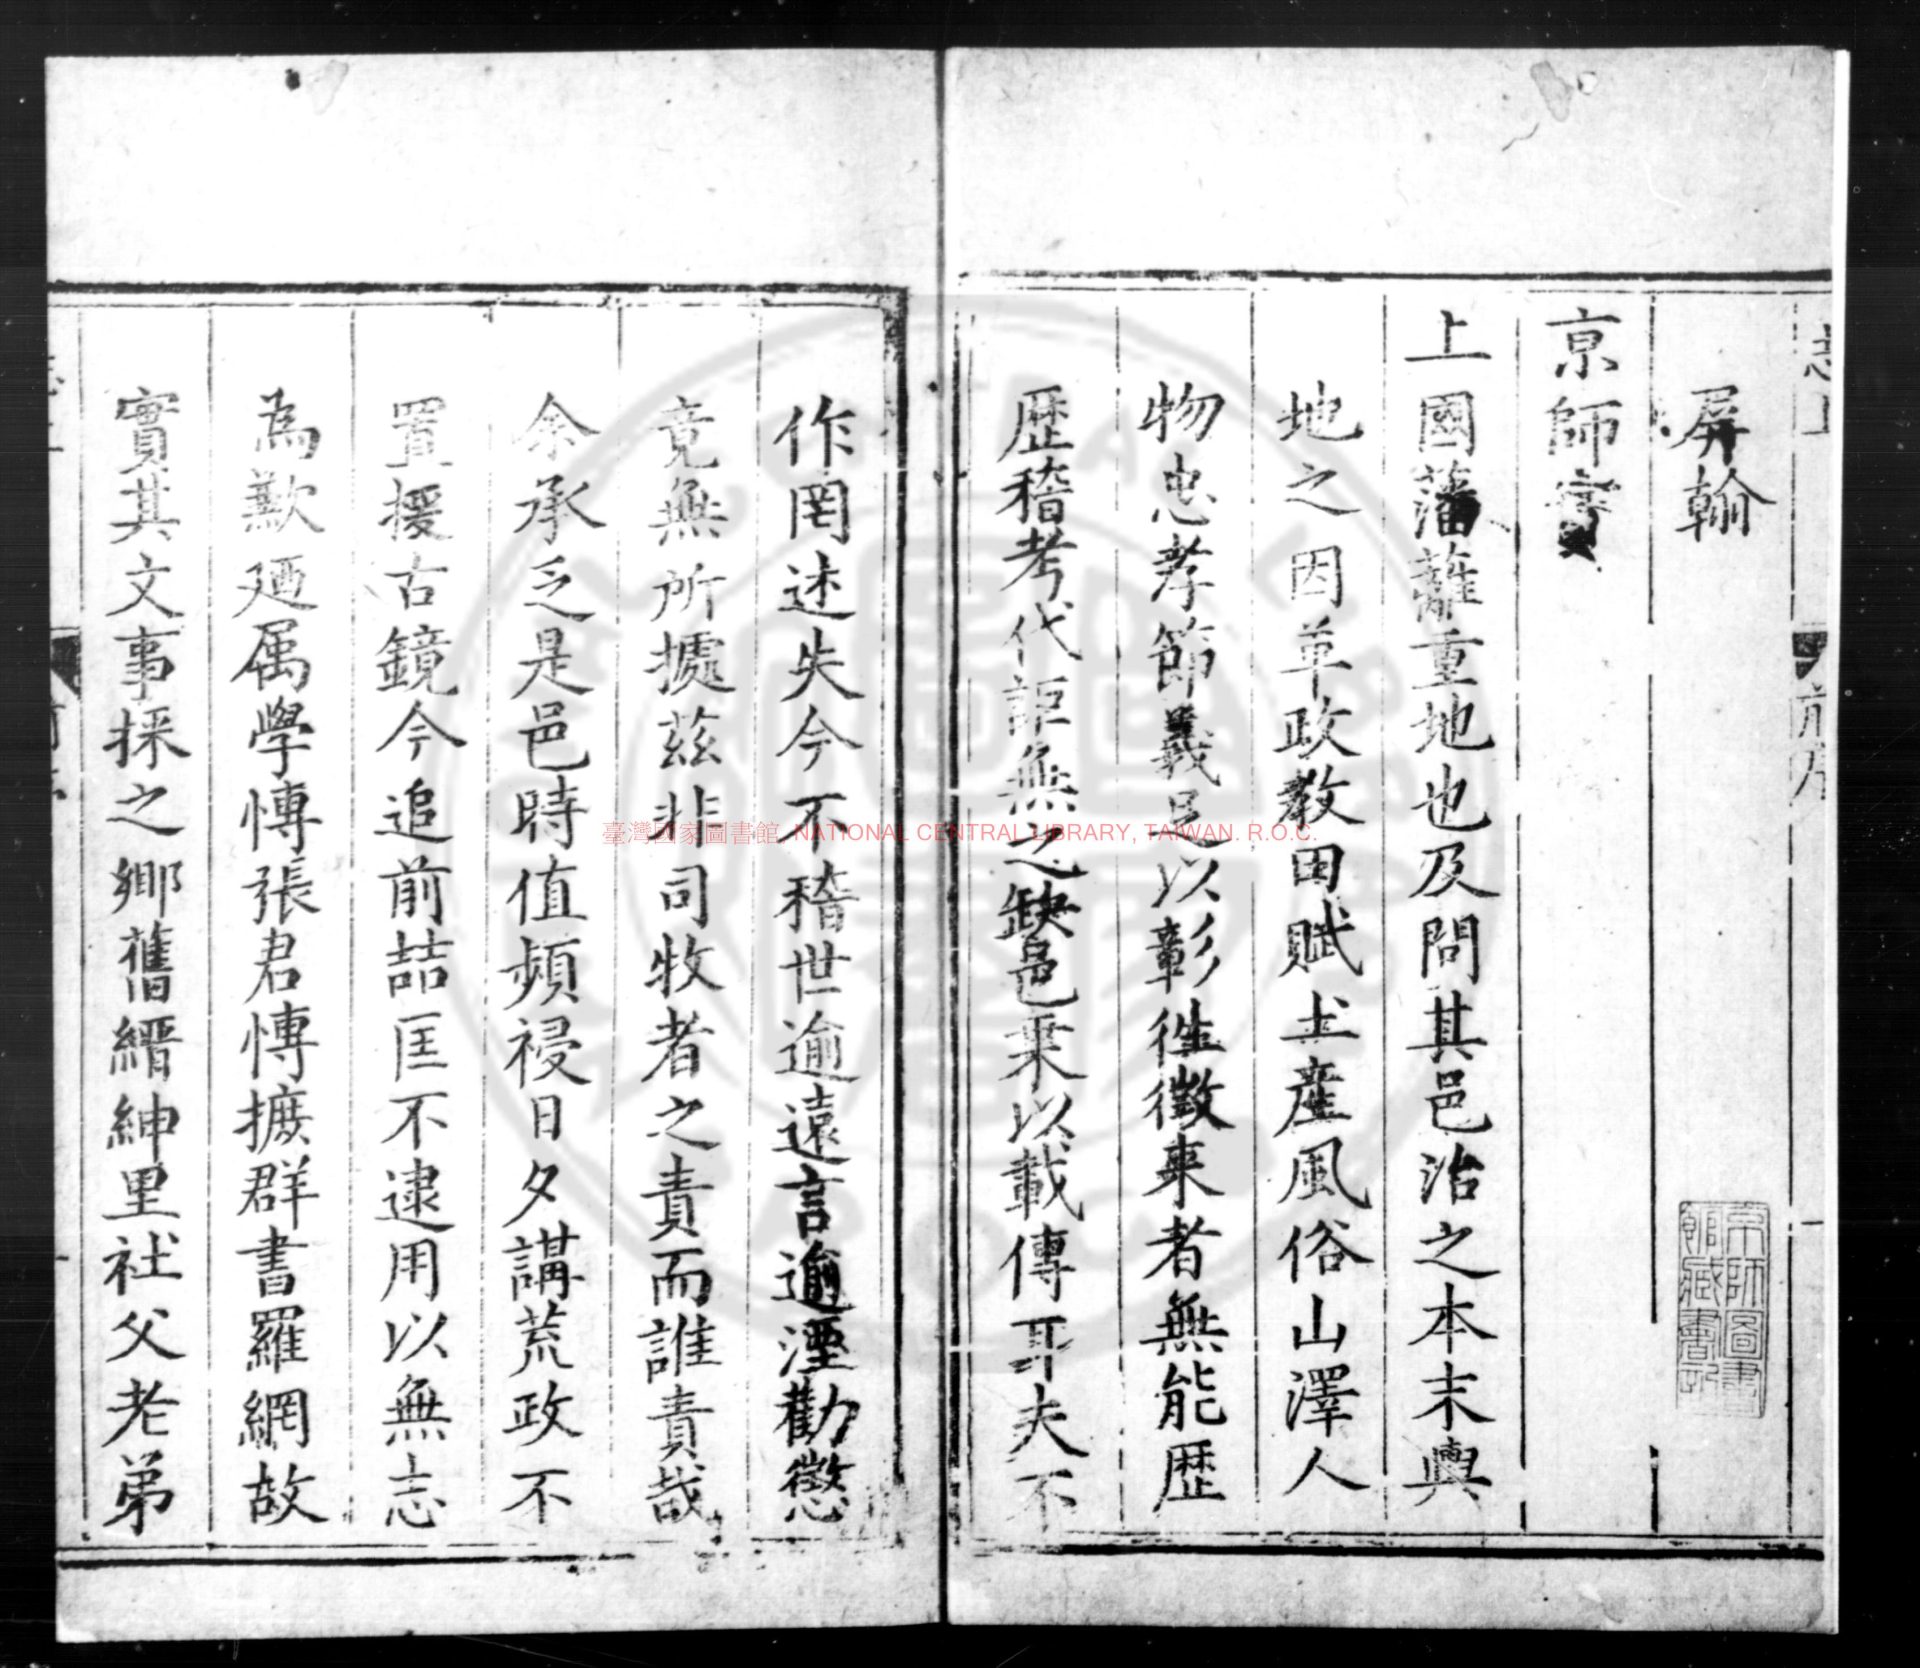 屏翰
京師實
上國藩蘺重地也及問其邑治之本末輿
地之因革政教田賦土產風俗山澤人
物忠孝節義足以彰徃徵來者無能歴
歴稽考代詎無之缺邑乗以載傳耳夫不
作罔述失今不稽世逾遠言逾湮勸懲
竟無所㨿茲非司牧者之責而誰責哉
余承乏是邑時值頻祲日夕講荒政不
置援古鏡今追前喆匡不逮用以無志
為歎廼属學愽張君愽摭群書羅網故
實其文事採之鄉舊縉紳里社父老弟
京師圖書
館藏書記
臺灣國家圖書館, NATIONAL CENTRAL LIBRARY, TAIWAN. R.O.C.